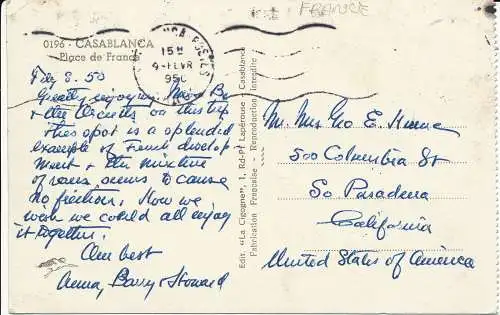 FRANCE
0196 - CASABLANCA
Place de France
CASA-POSTES
15 H
9-FEVR
950
Feb 8. 50
Greatly enjoying Miss Be
& the Orcutts on this trip
This spot is a splendid
example of French develop-
ment & the mixture
of races seems to cause
no friction. How we
wish we could all enjoy
it together.
Our best
Anna, Barry & Howard
Edit. "La Cigogne", 1, Rd-Pt Lapérouse - Casablanca
Fabrication Française - Reproduction Interdite
Mr. Mrs Geo E. Hume
500 Columbia St
So Pasadena
California
United States of America